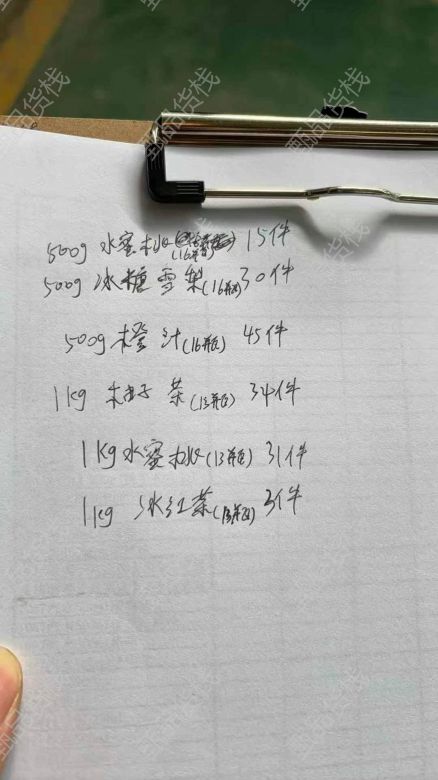 500g 水蜜桃(16瓶) 15件
500g 冰糖雪梨(16瓶) 30件
500g 橙汁(16瓶) 45件
1kg 柚子茶(13瓶) 34件
1kg 水蜜桃(13瓶) 31件
1kg 冰红茶(13瓶) 3件